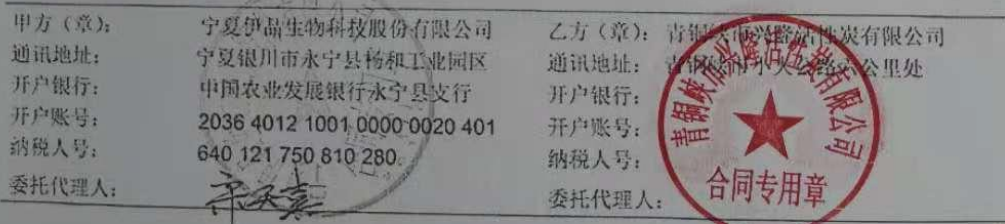 甲方（章）： 宁夏伊品生物科技股份有限公司
通讯地址： 宁夏银川市永宁县杨和工业园区
开户银行： 中国农业发展银行永宁县支行
开户账号： 2036 4012 1001 0000 0020 401
纳税人号： 640 121 750 810 280
委托代理人：
乙方（章）： 青铜峡市兴隆活性炭有限公司
通讯地址： 青铜峡市小大公路六公里处
开户银行：
开户账号：
纳税人号：
委托代理人：
青铜峡市兴隆活性炭有限公司
合同专用章